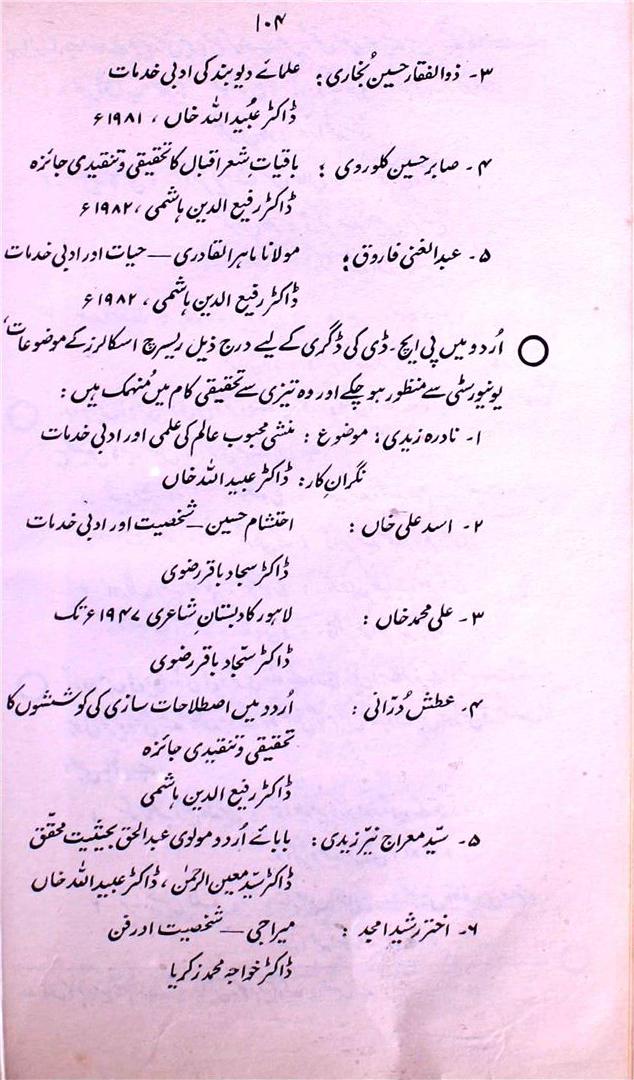 ۱۰۴
۳۔ ذوالفقار حسین بُخاری: علمائے دیوبند کی ادبی خدمات
ڈاکٹر عُبید اللہ خاں ، ۱۹۸۱ء
۴۔ صابر حسین کلوروی : باقیاتِ شعر اقبال کا تحقیقی و تنقیدی جائزہ
ڈاکٹر رفیع الدین ہاشمی ، ۱۹۸۲ء
۵۔ عبدالغنی فاروق : مولانا ماہر القادری — حیات اور ادبی خدمات
ڈاکٹر رفیع الدین ہاشمی ، ۱۹۸۲ء
اُردو میں پی ایچ۔ڈی کی ڈگری کے لیے درج ذیل ریسرچ اسکالرز کے موضوعات،
یونیورسٹی سے منظور ہو چکے اور وہ تیزی سے تحقیقی کام میں مُنہمک ہیں :
۱۔ نادرہ زیدی : موضوع : منشی محبوب عالم کی علمی اور ادبی خدمات
نگرانِ کار : ڈاکٹر عبید اللہ خاں
۲۔ اسد علی خاں : احتشام حسین — شخصیت اور ادبی خدمات
ڈاکٹر سجاد باقر رضوی
۳۔ علی محمد خاں : لاہور کا دبستانِ شاعری ۱۹۴۷ء تک
ڈاکٹر سجّاد باقر رضوی
۴۔ عطش دُرّانی : اُردو میں اصطلاحات سازی کی کوششوں کا
تحقیقی و تنقیدی جائزہ
ڈاکٹر رفیع الدین ہاشمی
۵۔ سیّد معراج نیّر زیدی : بابائے اُردو مولوی عبدالحق بحیثیت محقّق
ڈاکٹر سیّد معین الرحمٰن ، ڈاکٹر عبید اللہ خاں
۶۔ اختر رشید امجد : میراجی — شخصیت اور فن
ڈاکٹر خواجہ محمد زکریا